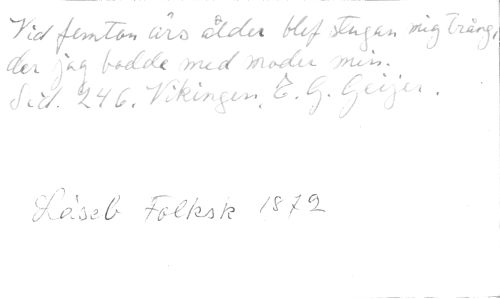 Vid femton års ålder blef stugan mig trång,
der jag bodde med moder min.
Sid. 246. Vikingen, E. G. Geijer.
Läseb Folksk 1872